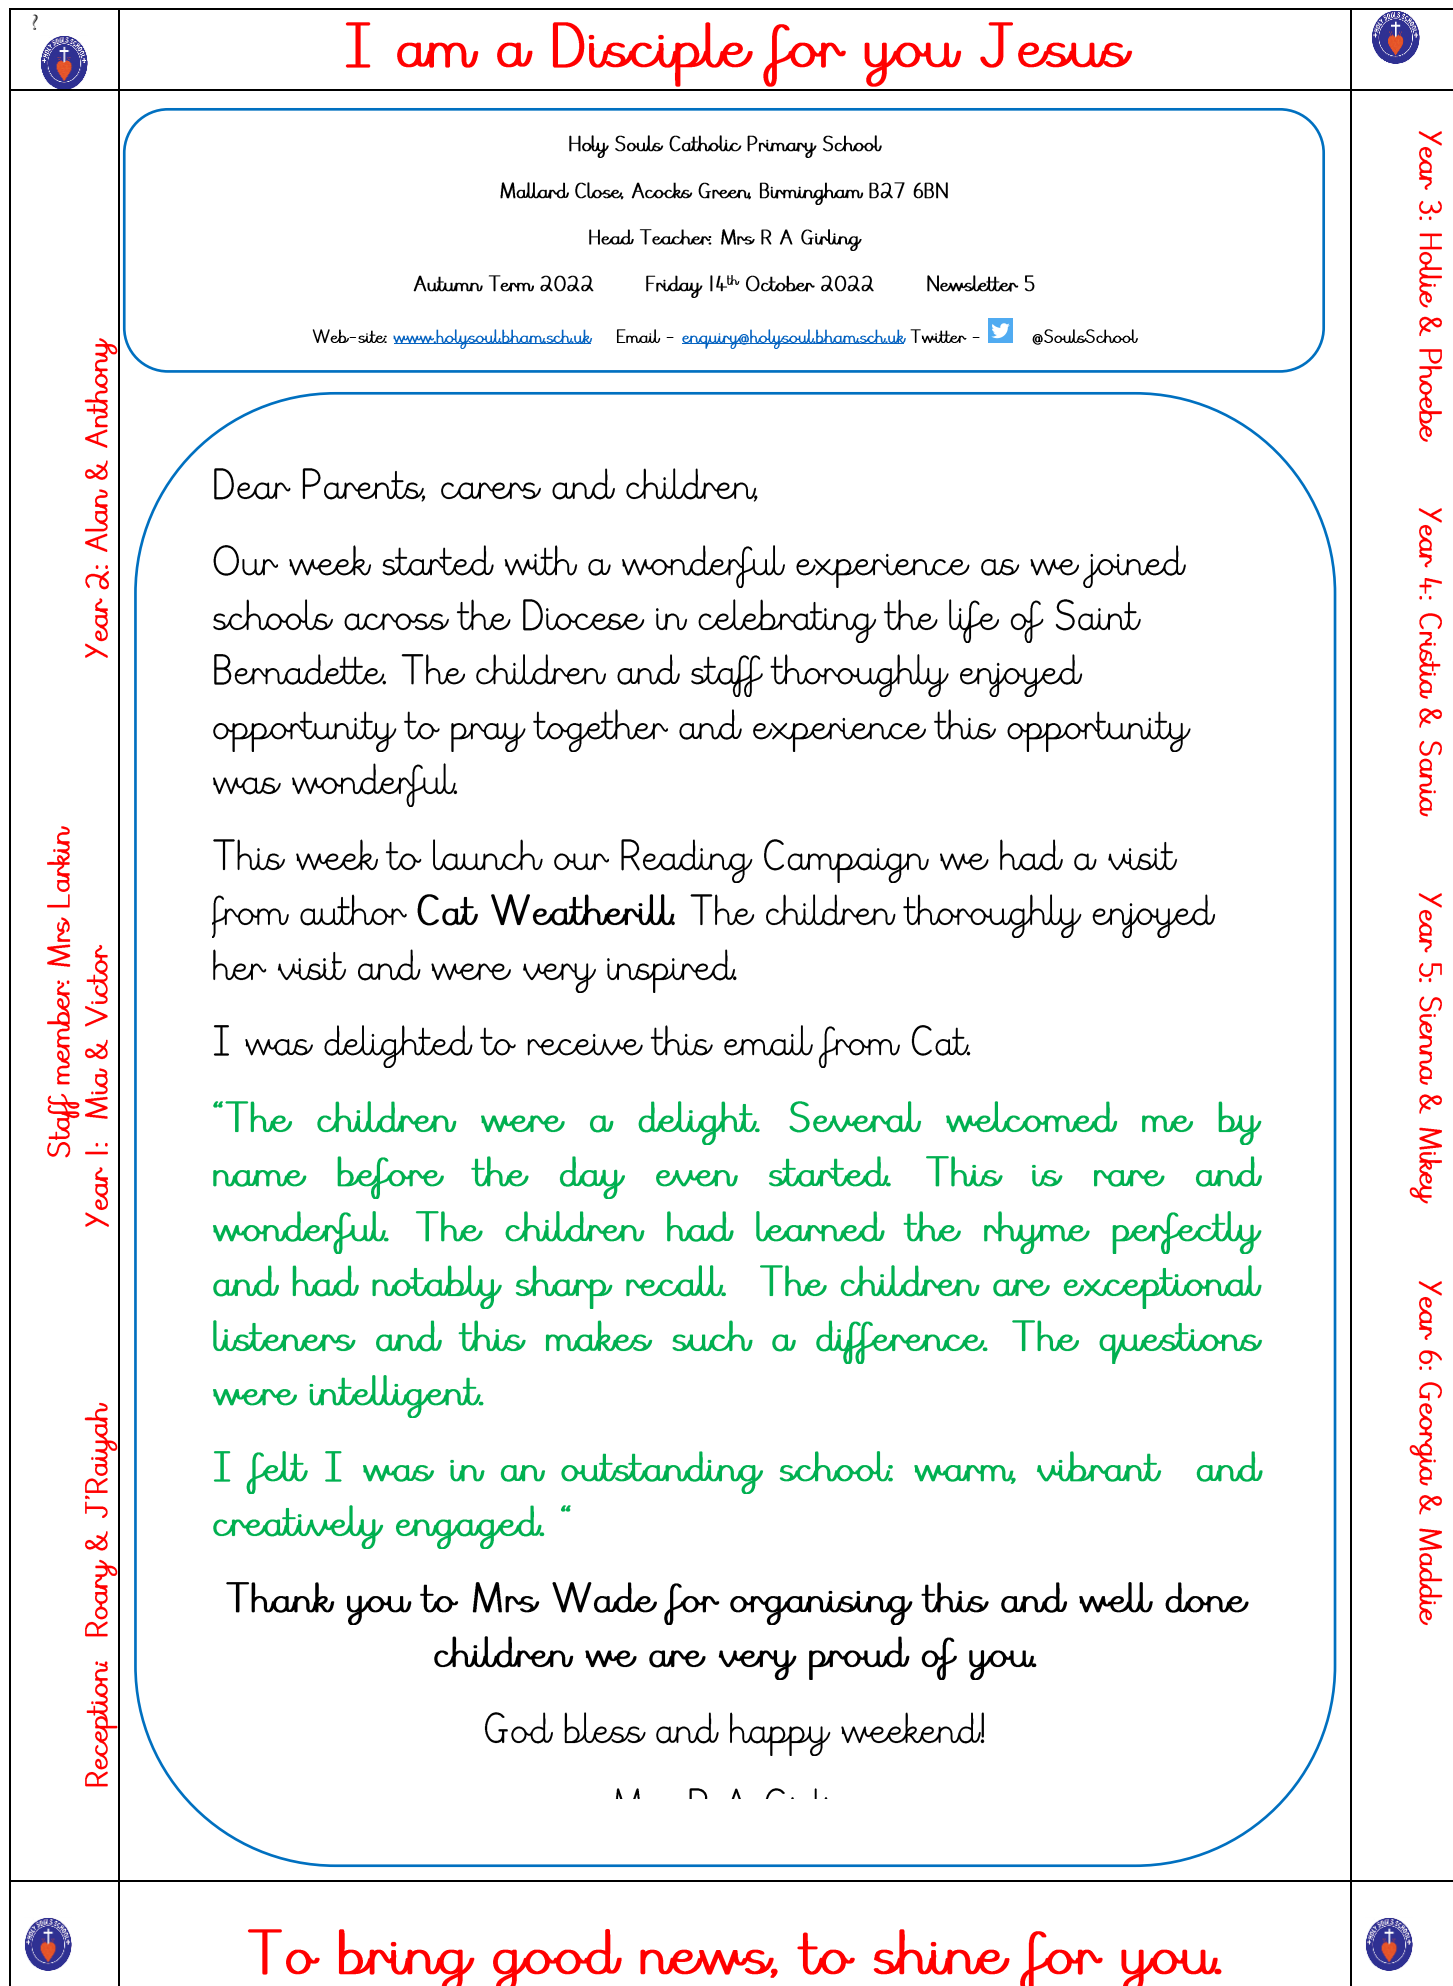 ?
I am a Disciple for you Jesus
Holy Souls Catholic Primary School
Mallard Close, Acocks Green, Birmingham B27 6BN
Head Teacher: Mrs R A Girling
Autumn Term 2022 Friday 14th October 2022 Newsletter 5
Web-site: www.holysoul.bham.sch.uk Email - enquiry@holysoul.bham.sch.uk Twitter - @SoulsSchool
Dear Parents, carers and children,
Our week started with a wonderful experience as we joined
schools across the Diocese in celebrating the life of Saint
Bernadette. The children and staff thoroughly enjoyed
opportunity to pray together and experience this opportunity
was wonderful.
This week to launch our Reading Campaign we had a visit
from author Cat Weatherill. The children thoroughly enjoyed
her visit and were very inspired.
I was delighted to receive this email from Cat.
“The children were a delight. Several welcomed me by
name before the day even started. This is rare and
wonderful. The children had learned the rhyme perfectly
and had notably sharp recall. The children are exceptional
listeners and this makes such a difference. The questions
were intelligent.
I felt I was in an outstanding school: warm, vibrant and
creatively engaged. “
Thank you to Mrs Wade for organising this and well done
children we are very proud of you.
God bless and happy weekend!
Staff member: Mrs Larkin
Reception: Roary & J'Raiyah
Year 1: Mia & Victor
Year 2: Alan & Anthony
Year 3: Hollie & Phoebe
Year 4: Cristia & Sania
Year 5: Sienna & Mikey
Year 6: Georgia & Maddie
To bring good news, to shine for you.